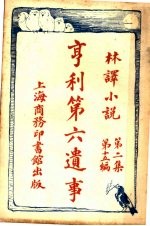 林譯小說
第二集
第十五編
亨利第六遺事
上海商務印書館出版